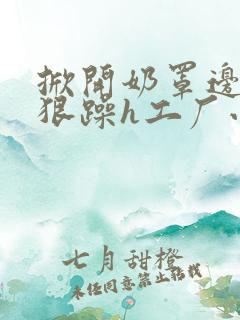 掀开奶罩边
狠躁h工厂.
七月甜橙
未经同意禁止转载